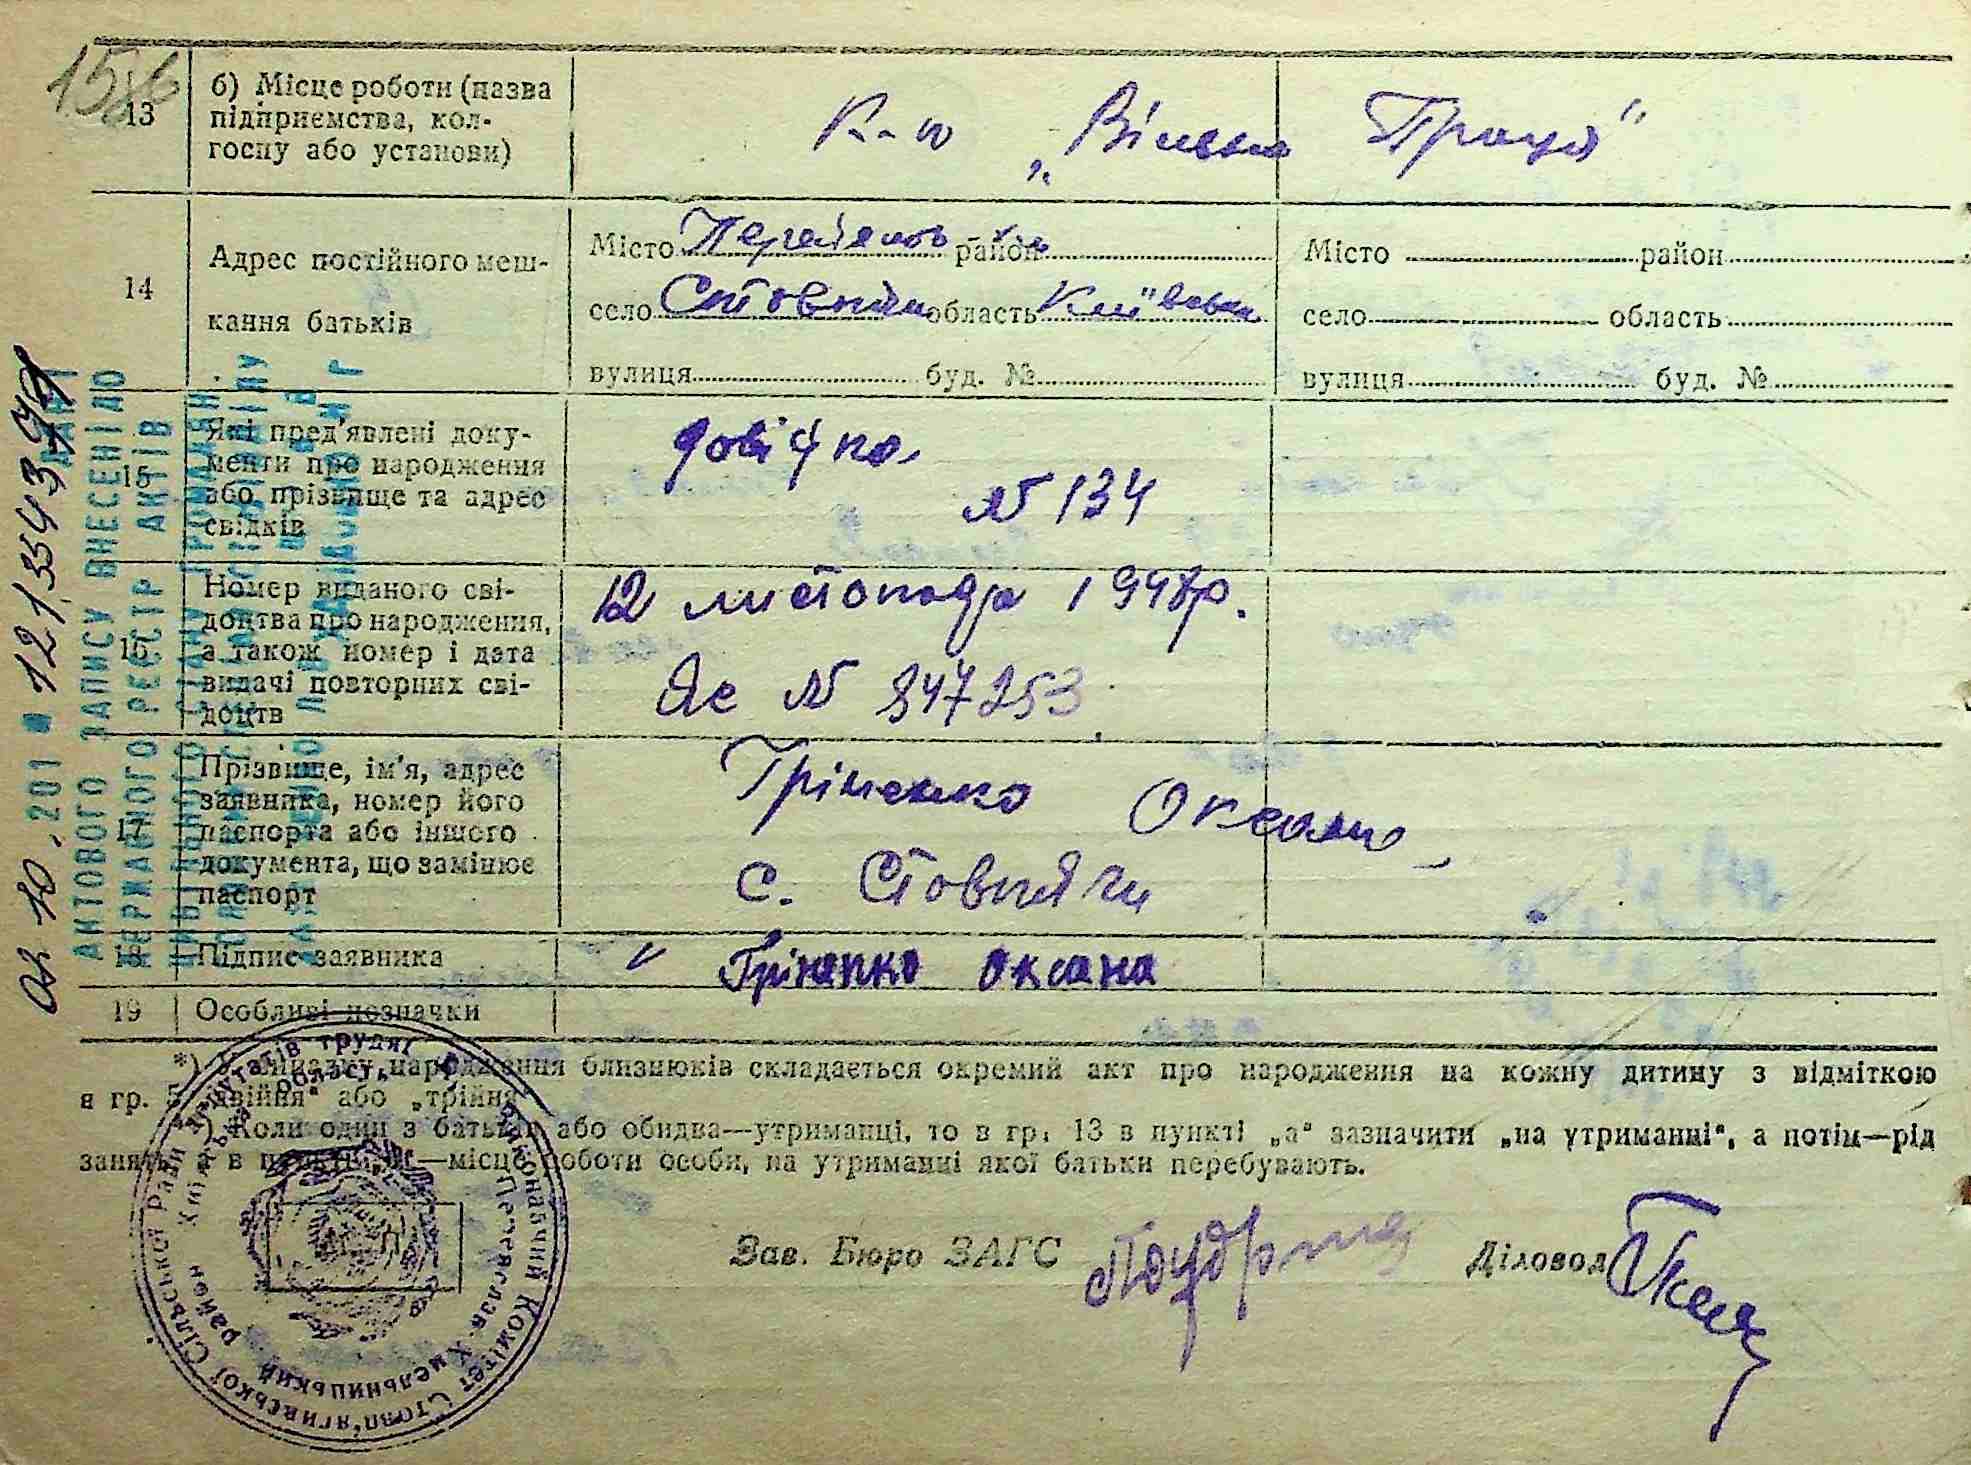 1586
13
б) Місце роботи (назва
підприємства, кол-
госпу або установи)
К-п „Вільна Праця"
14
Адрес постійного меш-
кання батьків
Місто район
село Стовпяги область Київська
вулиця буд. №
Місто район
село область
вулиця буд. №
15
Які пред'явлені доку-
менти про народження
або прізвище та адрес
свідків
довідка
№ 134
16
Номер виданого сві-
доцтва про народження,
а також номер і дата
видачі повторних сві-
доцтв
12 листопада 1948р.
ЯЄ № 847253
17
Прізвище, ім'я, адрес
заявника, номер його
паспорта або іншого
документа, що замінює
паспорт
Гріненко Оксана
с. Стовпяги
18
Підпис заявника
Гріненко Оксана
19
Особливі незначки
*) У випадку народження близнюків складається окремий акт про народження на кожну дитину з відміткою
в гр. 5 „двійня" або „трійня"
) Коли один з батьків або обидва—утриманці, то в гр. 13 в пункті „а" зазначити „на утриманні", а потім—рід
занять, а в пункті „б"—місце роботи особи, на утриманні якої батьки перебувають.
Зав. Бюро ЗАГС
Діловод
Виконавчий Комітет Стовп'ягивської Сільської Ради депутатів трудящих
Переяслав-Хмельницький район Київська область
АКТОВОГО ЗАПИСУ ВНЕСЕНІ ДО
ДЕРЖАВНОГО РЕЄСТР АКТІВ